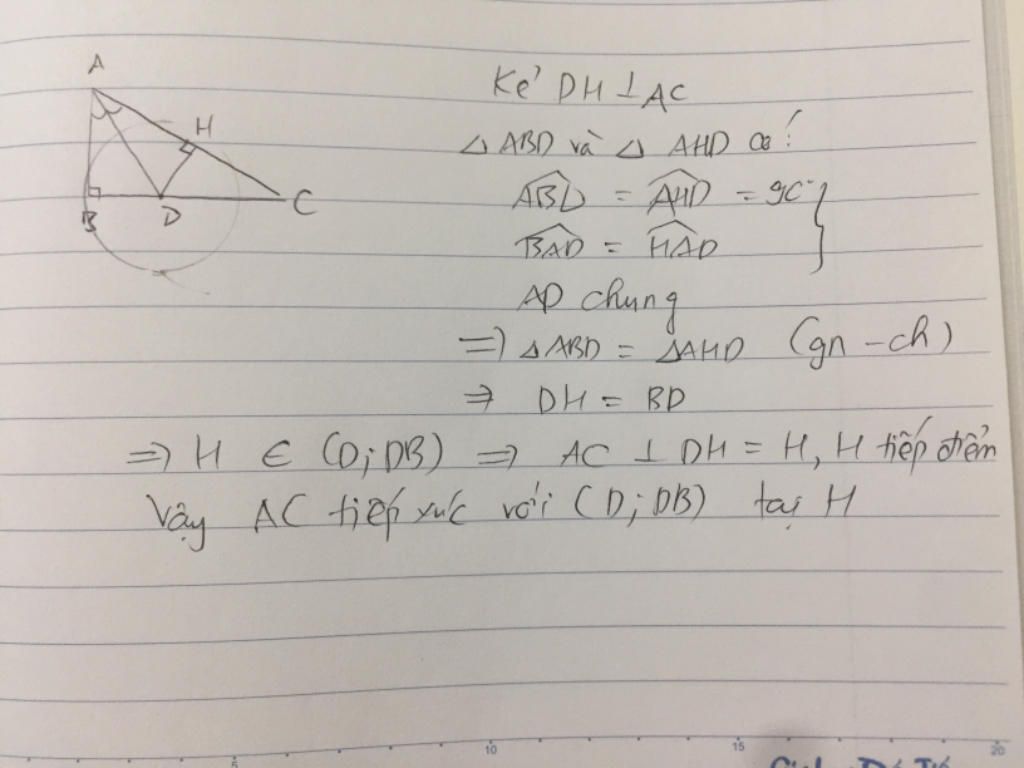 A
H
B
D
C
Kẻ DH ⊥ AC
△ ABD và △ AHD có:
ABD = AHD = 90°
BAD = HAD
AD chung
⇒ △ABD = △AHD (gn - ch)
⇒ DH = BD
⇒ H ∈ (D; DB) ⇒ AC ⊥ DH = H, H tiếp điểm
Vậy AC tiếp xúc với (D; DB) tại H
5
10
15
20